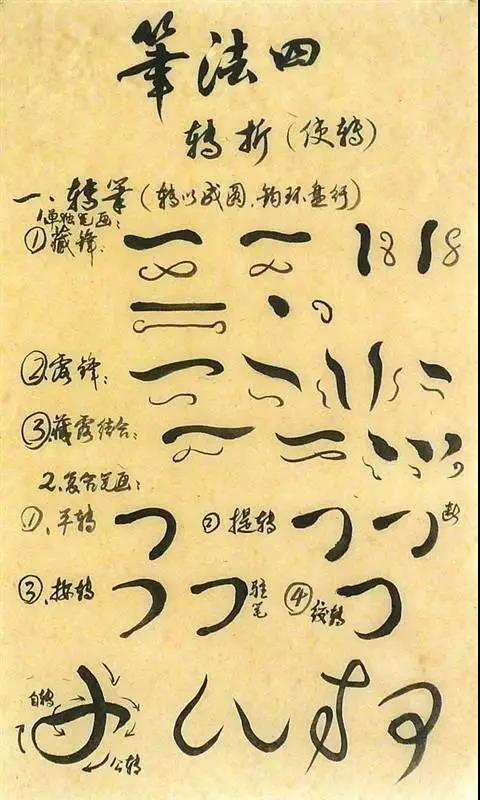 筆法四
转折(使转)
一、转筆(转以成圆、钩环盘行)
1、单独笔画:
①藏锋:
②露锋:
③藏露结合:
2、复合笔画:
①、平转 ②提转 断
③、按转 驻笔 ④绞转
自转
公转